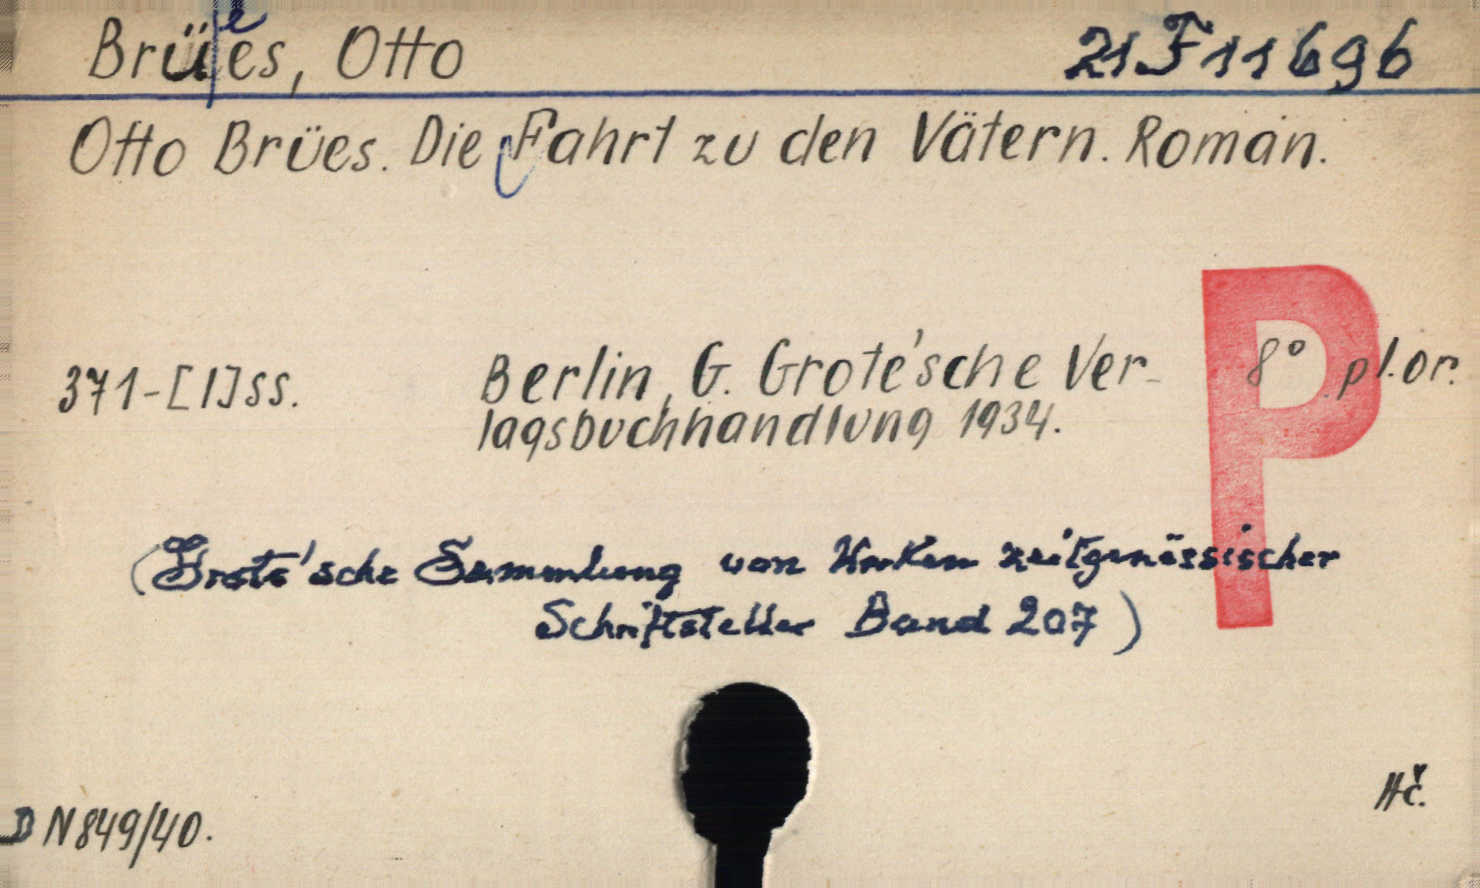 Brües, Otto 21 F 11696
Otto Brües. Die Fahrt zu den Vätern. Roman.
371-[1]ss. Berlin, G. Grote'sche Ver- 8° pl.or.
lagsbuchhandlung 1934.
P
(Grote'sche Sammlung von Werken zeitgenössischer
Schriftsteller Band 207)
Hč.
D N849/40.